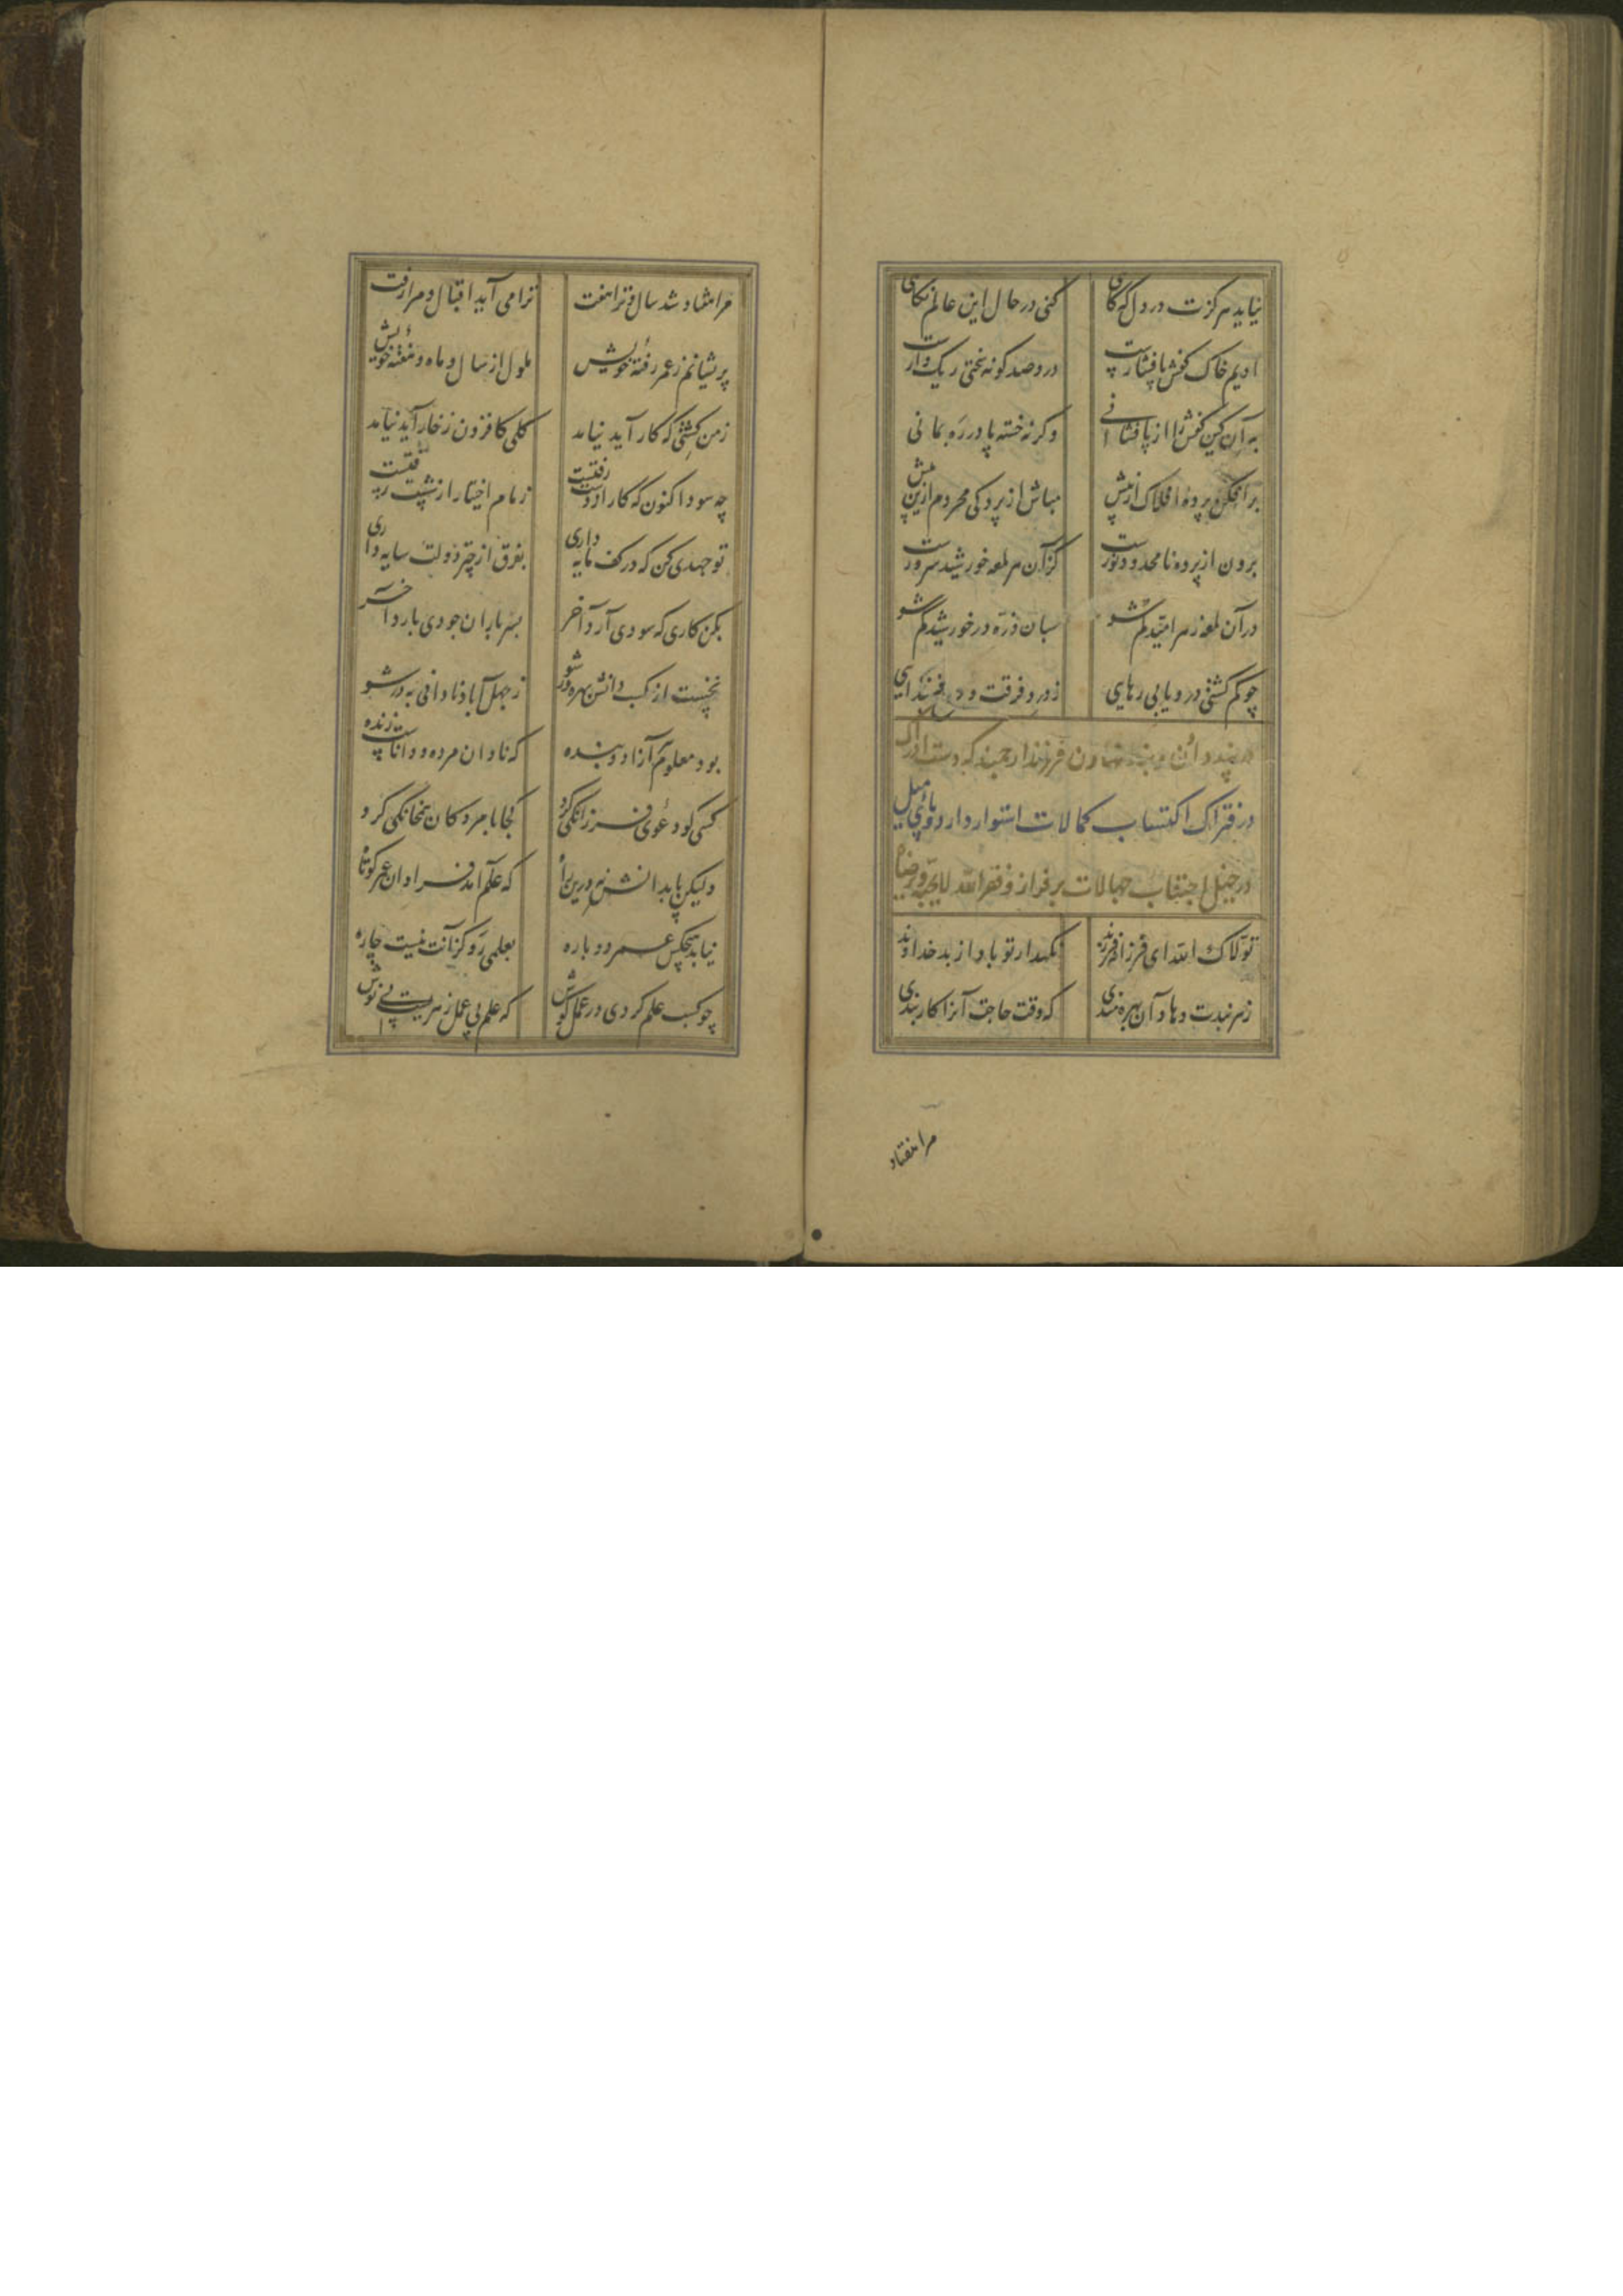 نیاید هرگزت در دل که گاهی کنی در حال این عالم نگاهی
ادیم خاک کفش پا فشارست در و صد گونه سختی ریگ وارست
به آن کین کفش را از پا فشانی وگرنه خسته پا در ره بمانی
برافکن پرده افلاک از پیش مباش از پردگی محروم ازین بیش
برون از پرده نامحدود نورست کزان هر لمعه خورشید سرورست
در آن لمعه ز سر امید گم شو بسان ذره در خورشید گم شو
چو گم گشتی در و یابی رهایی ز درد فرقت و داغ جدایی
در پند دادن و بند نهادن فرزند ارجمند که دست ادراک
در فتراک اکتساب کمالات استوار دارد و پای میل
در خیل اجتناب جهالات برقرار وفقه الله لما یحبه و یرضاه
تولاک الله ای فرزانه فرزند نگهدار تو باد از بد خداوند
ز هر پندت دهاد آن بهره‌مندی که وقت حاجت آنرا کار بندی
مرا هفتاد
مرا هفتاد شد سال و ترا هفت ترا می آید اقبال و مرا رفت
پریشانم ز عمر رفته خویش ملول از سال و ماه و هفته خویش
ز من کشتی که کار آید نیامد گلی کافزون ز خار آید نیامد
چه سود اکنون که کار از دست رفتست زمام اختیار از شست رفتست
تو جهدی کن که در کف مایه داری بفرق از چتر دولت سایه داری
بکن کاری که سودی آرد آخر بسر باران جودی بارد آخر
نخست از کسب دانش بهره‌ور شو ز جهل آباد نادانی بدر شو
بود معلوم هر آزاد و بنده که نادان مرده و داناست زنده
کسی کو دعوی فرزانگی کرد کجا با مردگان همخانگی کرد
ولیکن پا بدانش نه درین راه که علم آمد فراوان عمر کوتاه
نیابد هیچکس عمر دوباره بعلمی رو کز آنت نیست چاره
چو کسب علم کردی در عمل کوش که علم بی عمل زهریست بی نوش